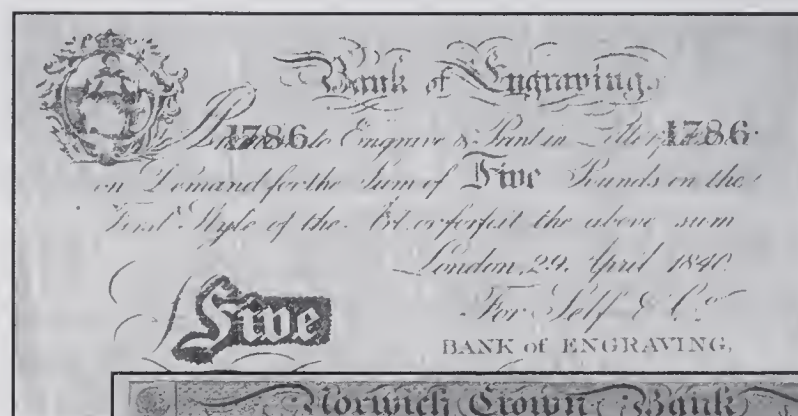 Bank of Engraving
1786 to Engrave & Print in 1786
on Demand for the Sum of Five Pounds on the
First Style of the Art or forfeit the above sum
London, 29. April 1840
For Self & Co.
Five
BANK of ENGRAVING,
Norwich Crown Bank